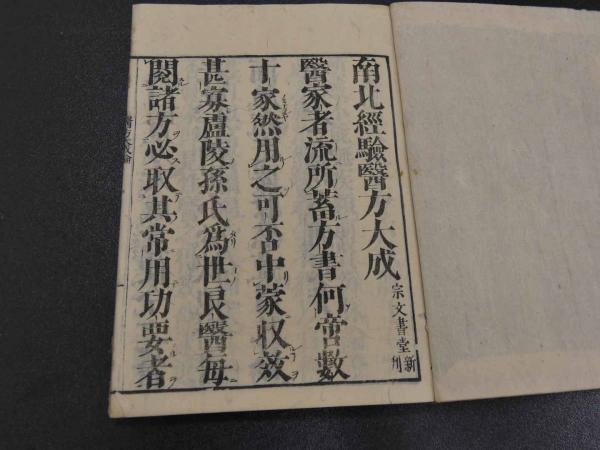 南北經驗醫方大成
宗文書堂新刋
醫家者流所蓄方書何啻數
十家然用之可否中蒙収效
甚寡盧陵孫氏為世良醫每
閱諸方必取其常用功要者